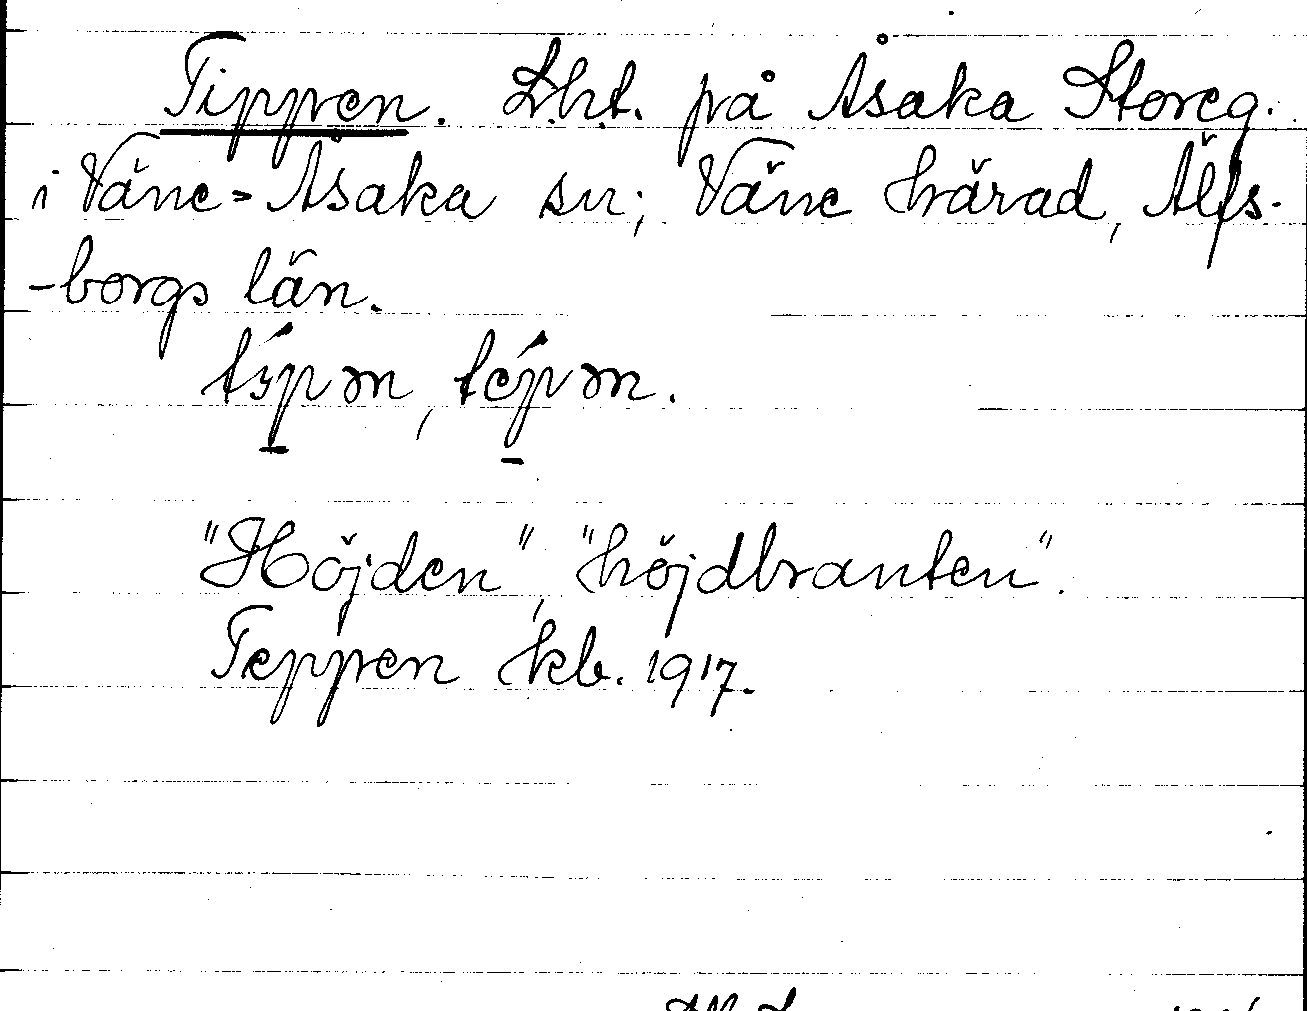 Tippen. L.h.t. på Åsaka Storeg.
i Väne-Åsaka sn; Väne härad, Älfs-
-borgs län.
"Höjden", "höjdbranten".
Teppen kb. 1917.